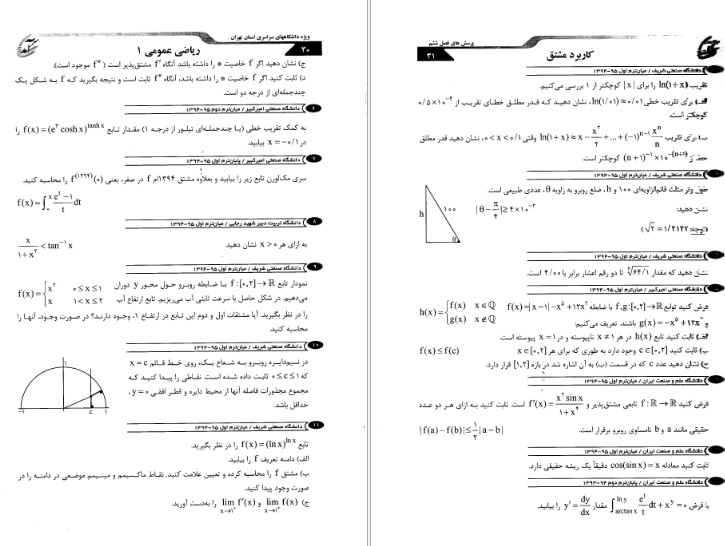 ویژه دانشگاههای سراسری استان تهران
ریاضی عمومی ۱
۳۰
ج) نشان دهید اگر f خاصیت * را داشته باشد، آنگاه f″ مشتق‌پذیر است ( f‴ موجود است).
د) ثابت کنید اگر f خاصیت * را داشته باشد، آنگاه f″ ثابت است و نتیجه بگیرید که f به شکل یک
چندجمله‌ای از درجه دو است.
۶ دانشگاه صنعتی امیرکبیر / میان‌ترم دوم ۹۵-۱۳۹۴
به کمک تقریب خطی (یا چندجمله‌ای تیلور از درجه ۱) مقدار تابع f(x) = (e^۲ cosh x)^{tanh x} را
در x = −۰/۱ بیابید.
۷ دانشگاه صنعتی امیرکبیر / پایان‌ترم اول ۹۵-۱۳۹۴
سری مک‌لورن تابع زیر را بیابید و بعلاوه مشتق ۱۳۹۴ام f در صفر، یعنی f^(۱۳۹۴)(۰) را محاسبه کنید.
f(x) = ∫_۰^x (e^t − ۱)/t dt
۸ دانشگاه تربیت دبیر شهید رجایی / میان‌ترم اول ۹۵-۱۳۹۴
به ازای هر x > ۰ نشان دهید x/(۱+x^۲) < tan^{-۱} x
۹ دانشگاه صنعتی شریف / میان‌ترم اول ۹۵-۱۳۹۴
نمودار تابع f:[۰,۲]→ℝ با ضابطه روبرو حول محور y دوران f(x) = { x^۲ ۰≤x≤۱ ; x ۱<x≤۲
می‌دهیم. در شکل حاصل با سرعت ثابتی آب می‌ریزیم. تابع ارتفاع آب
را در نظر بگیرید. آیا مشتقات اول و دوم این تابع در ارتفاع ۱، وجود دارند؟ در صورت وجود، آنها را
محاسبه کنید.
۱۰ دانشگاه صنعتی شریف / میان‌ترم اول ۹۵-۱۳۹۴
در نیم‌دایره روبرو به شعاع یک، روی خط قائم x = c
که ۰≤c≤۱ ثابت داده شده است. نقاطی را پیدا کنید که
مجموع مجذورات فاصله آنها از محیط دایره و قطر افقی y = ۰،
حداقل باشد.
c
۱۱ دانشگاه صنعتی شریف / میان‌ترم اول ۹۵-۱۳۹۴
تابع f(x) = (ln x)^{ln x} را در نظر بگیرید.
الف) دامنه تعریف f را بیابید.
ب) مشتق f را محاسبه کرده و تعیین علامت کنید. نقاط ماکسیمم و مینیمم موضعی در دامنه را در
صورت وجود پیدا کنید.
ج) lim_{x→۱⁺} f(x) و lim_{x→۱⁺} f′(x) را به‌دست آورید.
پرسش های فصل ششم
کاربرد مشتق
۳۱
دانشگاه صنعتی شریف / میان‌ترم اول ۹۵-۱۳۹۴
تقریب ln(۱+x) را برای |x| کوچکتر از ۱ بررسی می‌کنیم.
الف) برای تقریب خطی ln(۱/۰۱) ≈ ۰/۰۱، نشان دهید که قدر مطلق خطای تقریب از ۰/۵×۱۰^{-۴}
کوچکتر است.
ب) برای تقریب ln(۱+x) ≈ x − x^۲/۲ + ... + (−۱)^{n−۱} x^n/n وقتی ۰<x<۰/۱، نشان دهید قدر مطلق
خطا از (n+۱)^{-۱}×۱۰^{-(n+۱)} کوچکتر است.
دانشگاه صنعتی شریف / میان‌ترم اول ۹۵-۱۳۹۴
طول وتر مثلث قائم‌الزاویه‌ای ۱۰۰ و h، ضلع روبرو به زاویه θ، عددی طبیعی است.
نشان دهید: |θ − π/۴| ≥ ۴×۱۰^{-۳}
(توجه: √۲ = ۱/۴۱۴۲)
h
۱۰۰
θ
دانشگاه صنعتی شریف / میان‌ترم اول ۹۵-۱۳۹۴
نشان دهید که مقدار
تا دو رقم اعشار برابر با ۴/۰۰ است.
دانشگاه صنعتی امیرکبیر / میان‌ترم اول ۹۵-۱۳۹۴
فرض کنید توابع f,g:[۰,۲]→ℝ با ضابطه f(x) = |x−۱| − x^۵ + ۱۲x^۲ h(x) = { f(x) x∈ℚ ; g(x) x∉ℚ
و g(x) = −x^۵ + ۱۲x^۲ باشند. تعریف می‌کنیم:
الف) ثابت کنید تابع h(x) در هر x≠۱ ناپیوسته و در x=۱ پیوسته است.
ب) ثابت کنید c∈[۰,۲] وجود دارد به طوری که برای هر x∈[۰,۲] f(x) ≤ f(c)
ج) نشان دهید عدد c که در قسمت (ب) به آن اشاره شد در بازه [۱,۲] قرار دارد.
دانشگاه علم و صنعت ایران / میان‌ترم اول ۹۵-۱۳۹۴
فرض کنید f:ℝ→ℝ تابعی مشتق‌پذیر و f′(x) = x^۲ sin x/(۱+x^۴) است. ثابت کنید به ازای هر دو عدد
حقیقی مانند a و b نامساوی روبرو برقرار است. |f(a)−f(b)| ≤ ۱/۲ |a−b|
دانشگاه علم و صنعت ایران / میان‌ترم اول ۹۵-۱۳۹۴
ثابت کنید معادله cos(sin x) = x دقیقاً یک ریشه حقیقی دارد.
دانشگاه علم و صنعت ایران / پایان‌ترم دوم ۹۴-۱۳۹۳
با فرض ∫_{arctan x}^{ln y} e^t/t dt + x^y = ۰ مقدار y′ = dy/dx را بیابید.